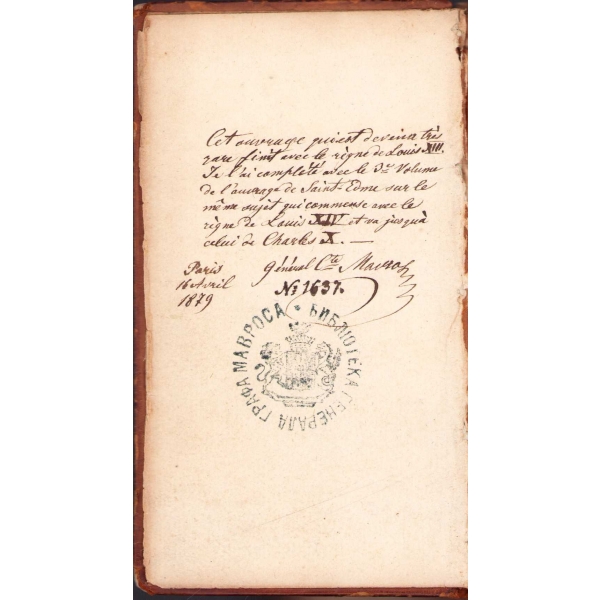 Cet ouvrage qui est devenu très
rare finit avec le règne de Louis XIII.
Je l'ai complété avec le 3me Volume
de l'ouvrage de Saint-Edme sur le
même sujet qui commense avec le
règne de Louis XIV et va jusqu'à
celui de Charles X. —
Paris Général Cte Mavros
16 Avril No 1637.
1879
БИБЛІОТЕКА ГЕНЕРАЛА ГРАФА МАВРОСА